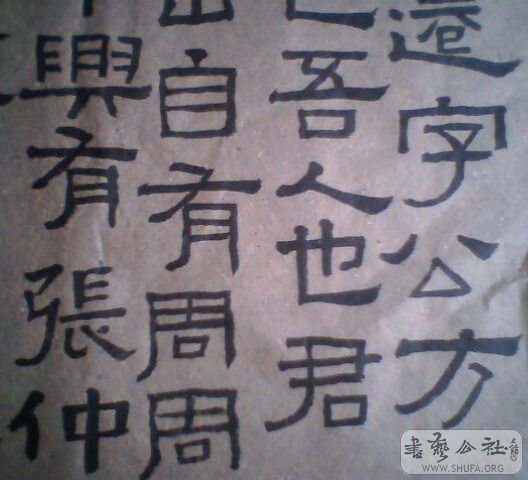 遷字公方
吾人也君
自有周周
興有張仲
書藝公社
WWW.SHUFA.ORG